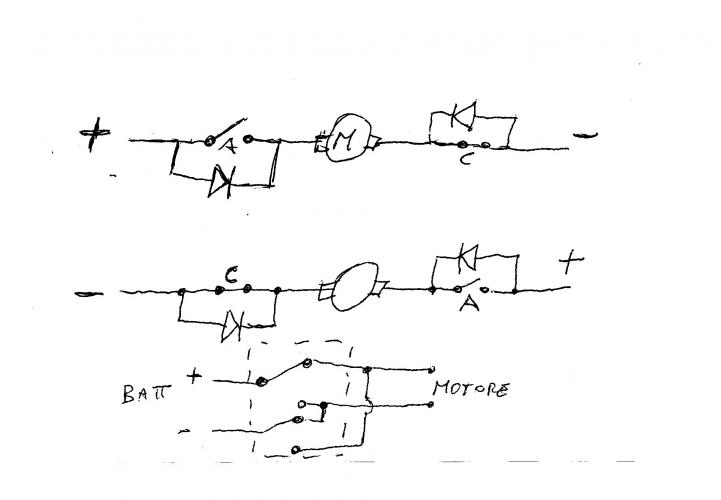 + A M C -
- C A +
BATT + MOTORE
-